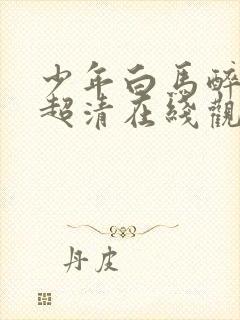 少年白馬醉
超清在綫觀
丹皮